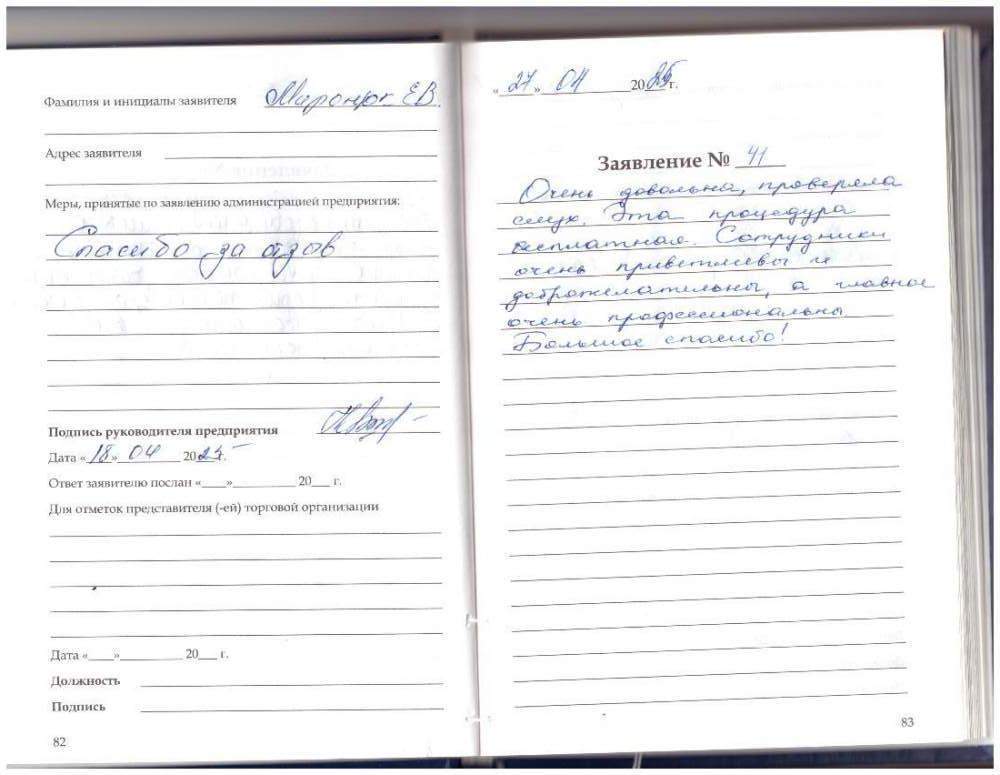 Фамилия и инициалы заявителя Миронюк Е.В.
Адрес заявителя
Меры, принятые по заявлению администрацией предприятия:
Спасибо за отзов
Подпись руководителя предприятия
Дата «18» 04 2025 г.
Ответ заявителю послан «___»__________ 20___ г.
Для отметок представителя (-ей) торговой организации
Дата «____»__________ 20___ г.
Должность
Подпись
82
«27» 04 2025 г.
Заявление № 41
Очень довольна, проверяла
слух. Эта процедура
бесплатная. Сотрудники
очень приветливы и
доброжелательны, а главное
очень профессиональны
Большое спасибо!
83